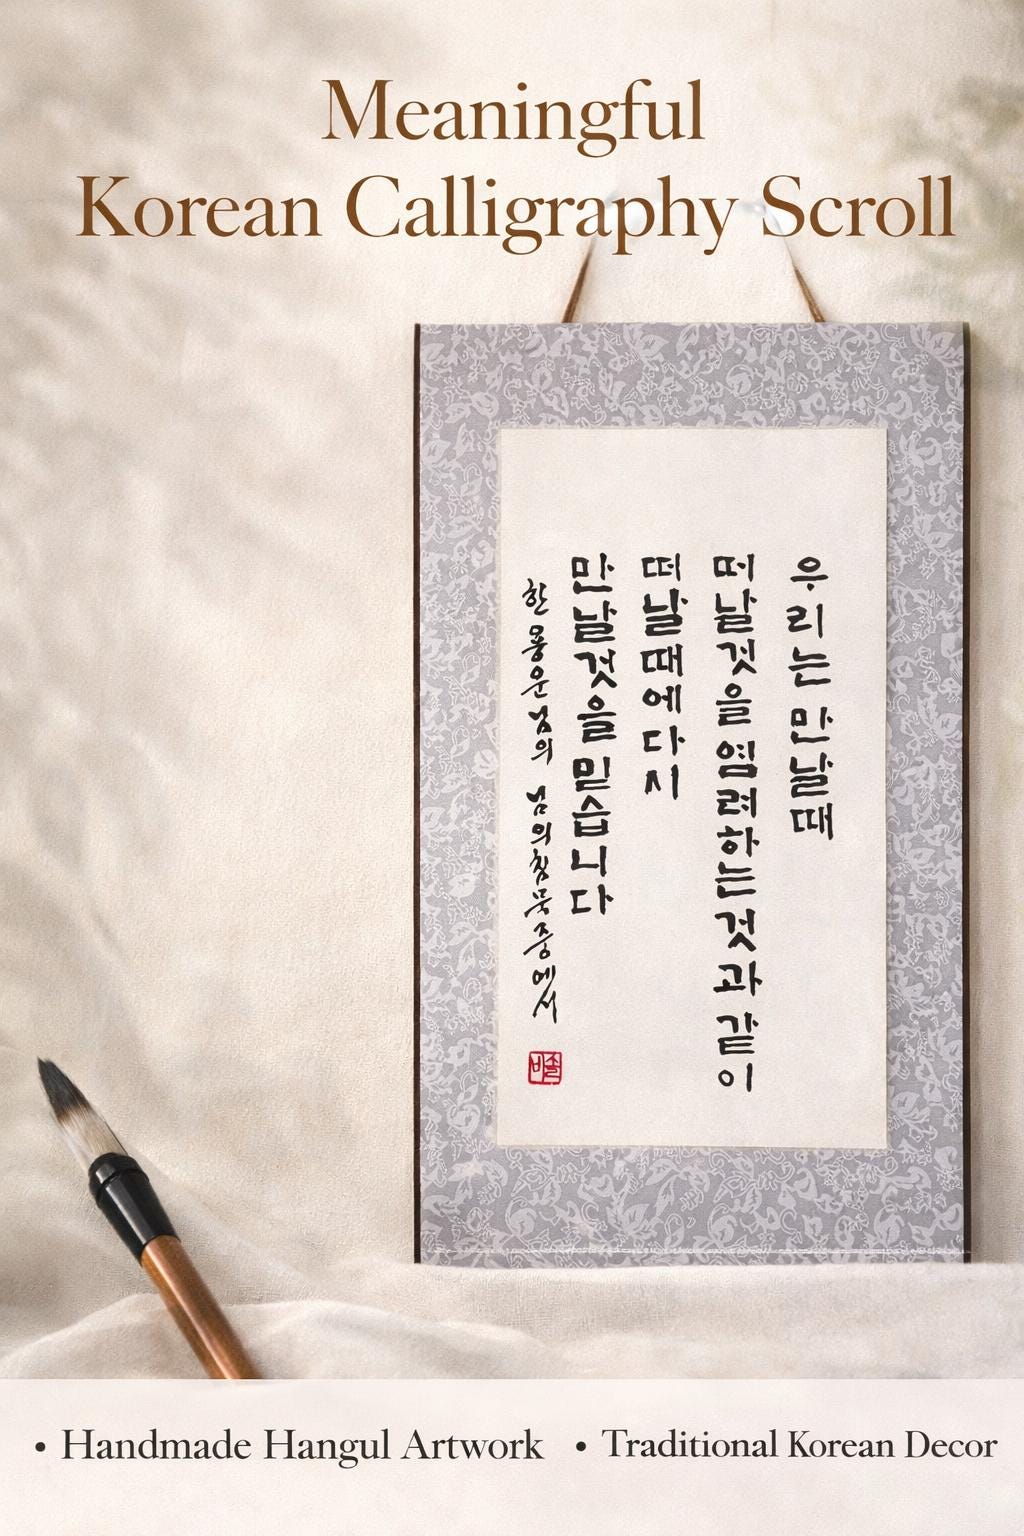 Meaningful
Korean Calligraphy Scroll
우리는 만날때
떠날것을 염려하는것과 같이
떠날때에다시
만날것을 믿습니다
한용운님의 님의침묵중에서
• Handmade Hangul Artwork
• Traditional Korean Decor